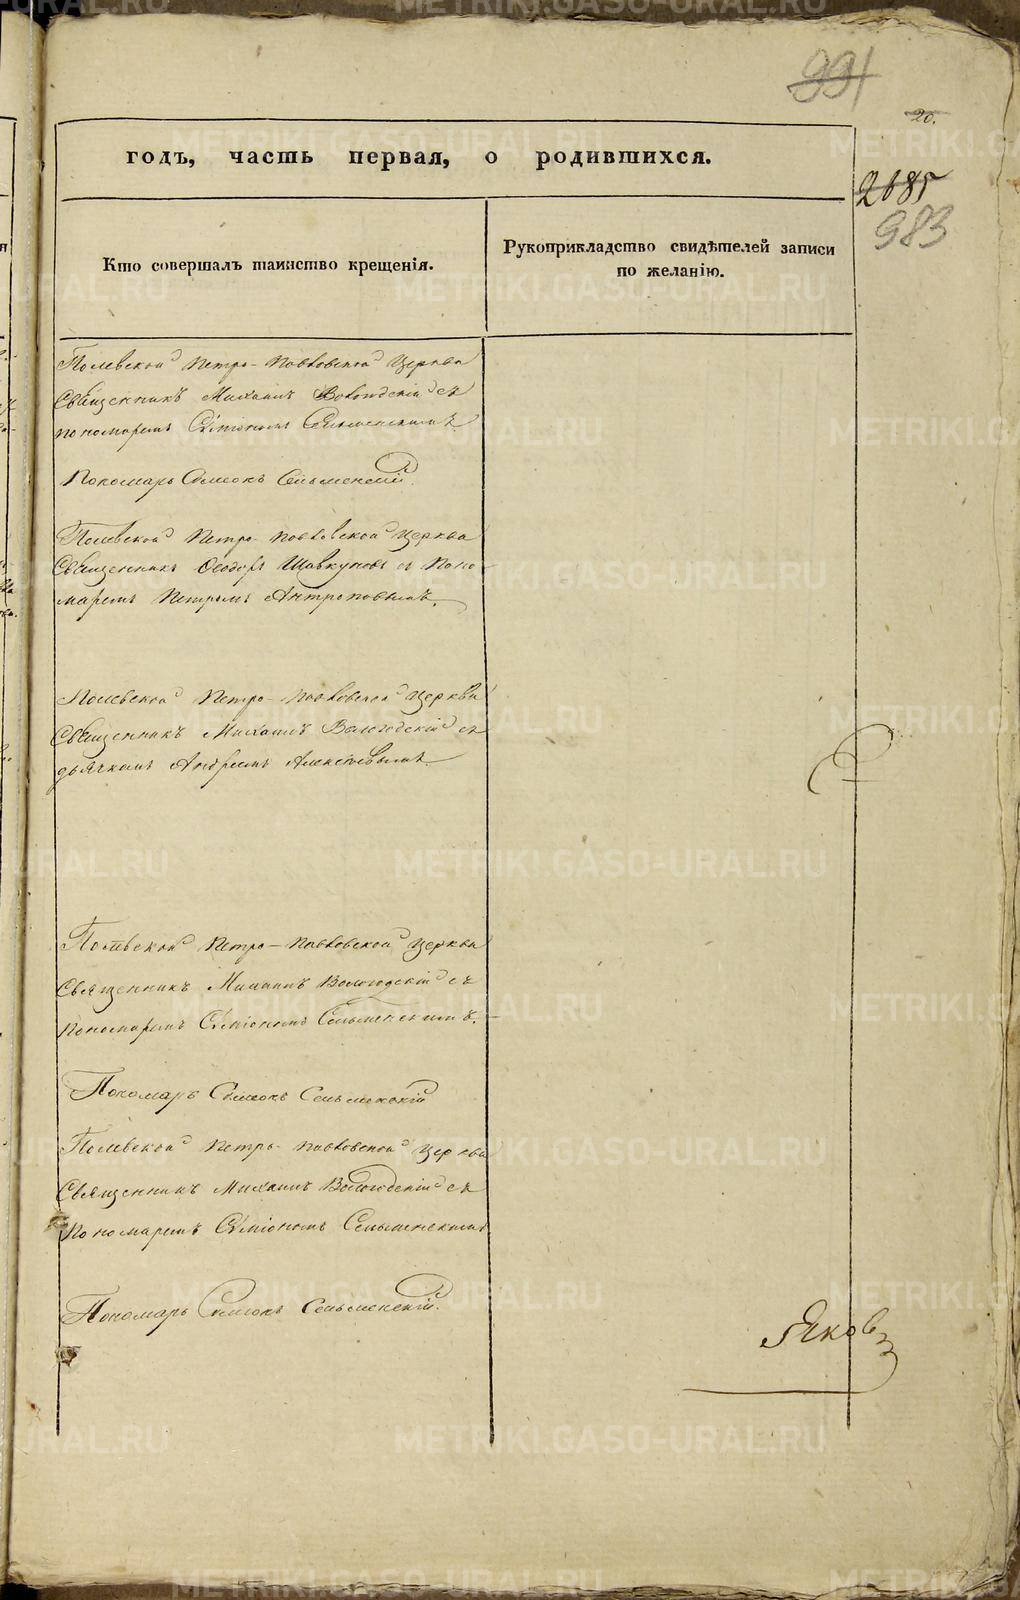 991
20.
годъ, часть первая, о родившихся.
2685
983
Кто совершалъ таинство крещенія.
Рукоприкладство свидѣтелей записи
по желанію.
Полевской Петро-Павловской Церкви
Священникъ Михаилъ Вологодскій съ
пономаремъ Сѵмеономъ Сельменскимъ
Пономарь Симеонъ Сельменскій.
Полевской Петро-Павловской Церкви
Священникъ Ѳеодоръ Шавкуновъ съ Поно-
маремъ Петромъ Антроповымъ.
Полевской Петро-Павловской Церкви
Священникъ Михаилъ Вологодскій съ
дьячкомъ Андреемъ Алексѣевымъ.
Полевской Петро-Павловской Церкви
Священникъ Михаилъ Вологодскій съ
Пономаремъ Сѵмеономъ Сельменскимъ.
Пономарь Симеонъ Сельменскій
Полевской Петро-Павловской Церкви
Священникъ Михаилъ Вологодскій съ
Пономаремъ Сѵмеономъ Сельменскимъ
Пономарь Симеонъ Сельменскій.
Яковъ
METRIKI.GASO-URAL.RU